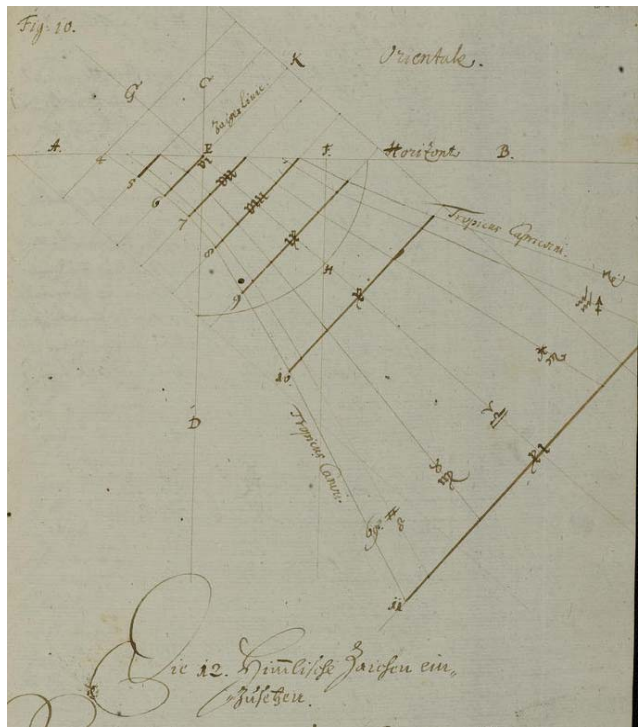 Fig. 10.
Orientale.
G
C
K
Zeiger Linie.
A.
4
E
VI
F.
Horizont
B.
5
6
7
VII
VIII
8
IX
9
H
X
10
Tropicus Capricorni.
D
Tropicus Cancri.
XI
11
Die 12. Himlische Zaichen ein„
„Zusetzen.